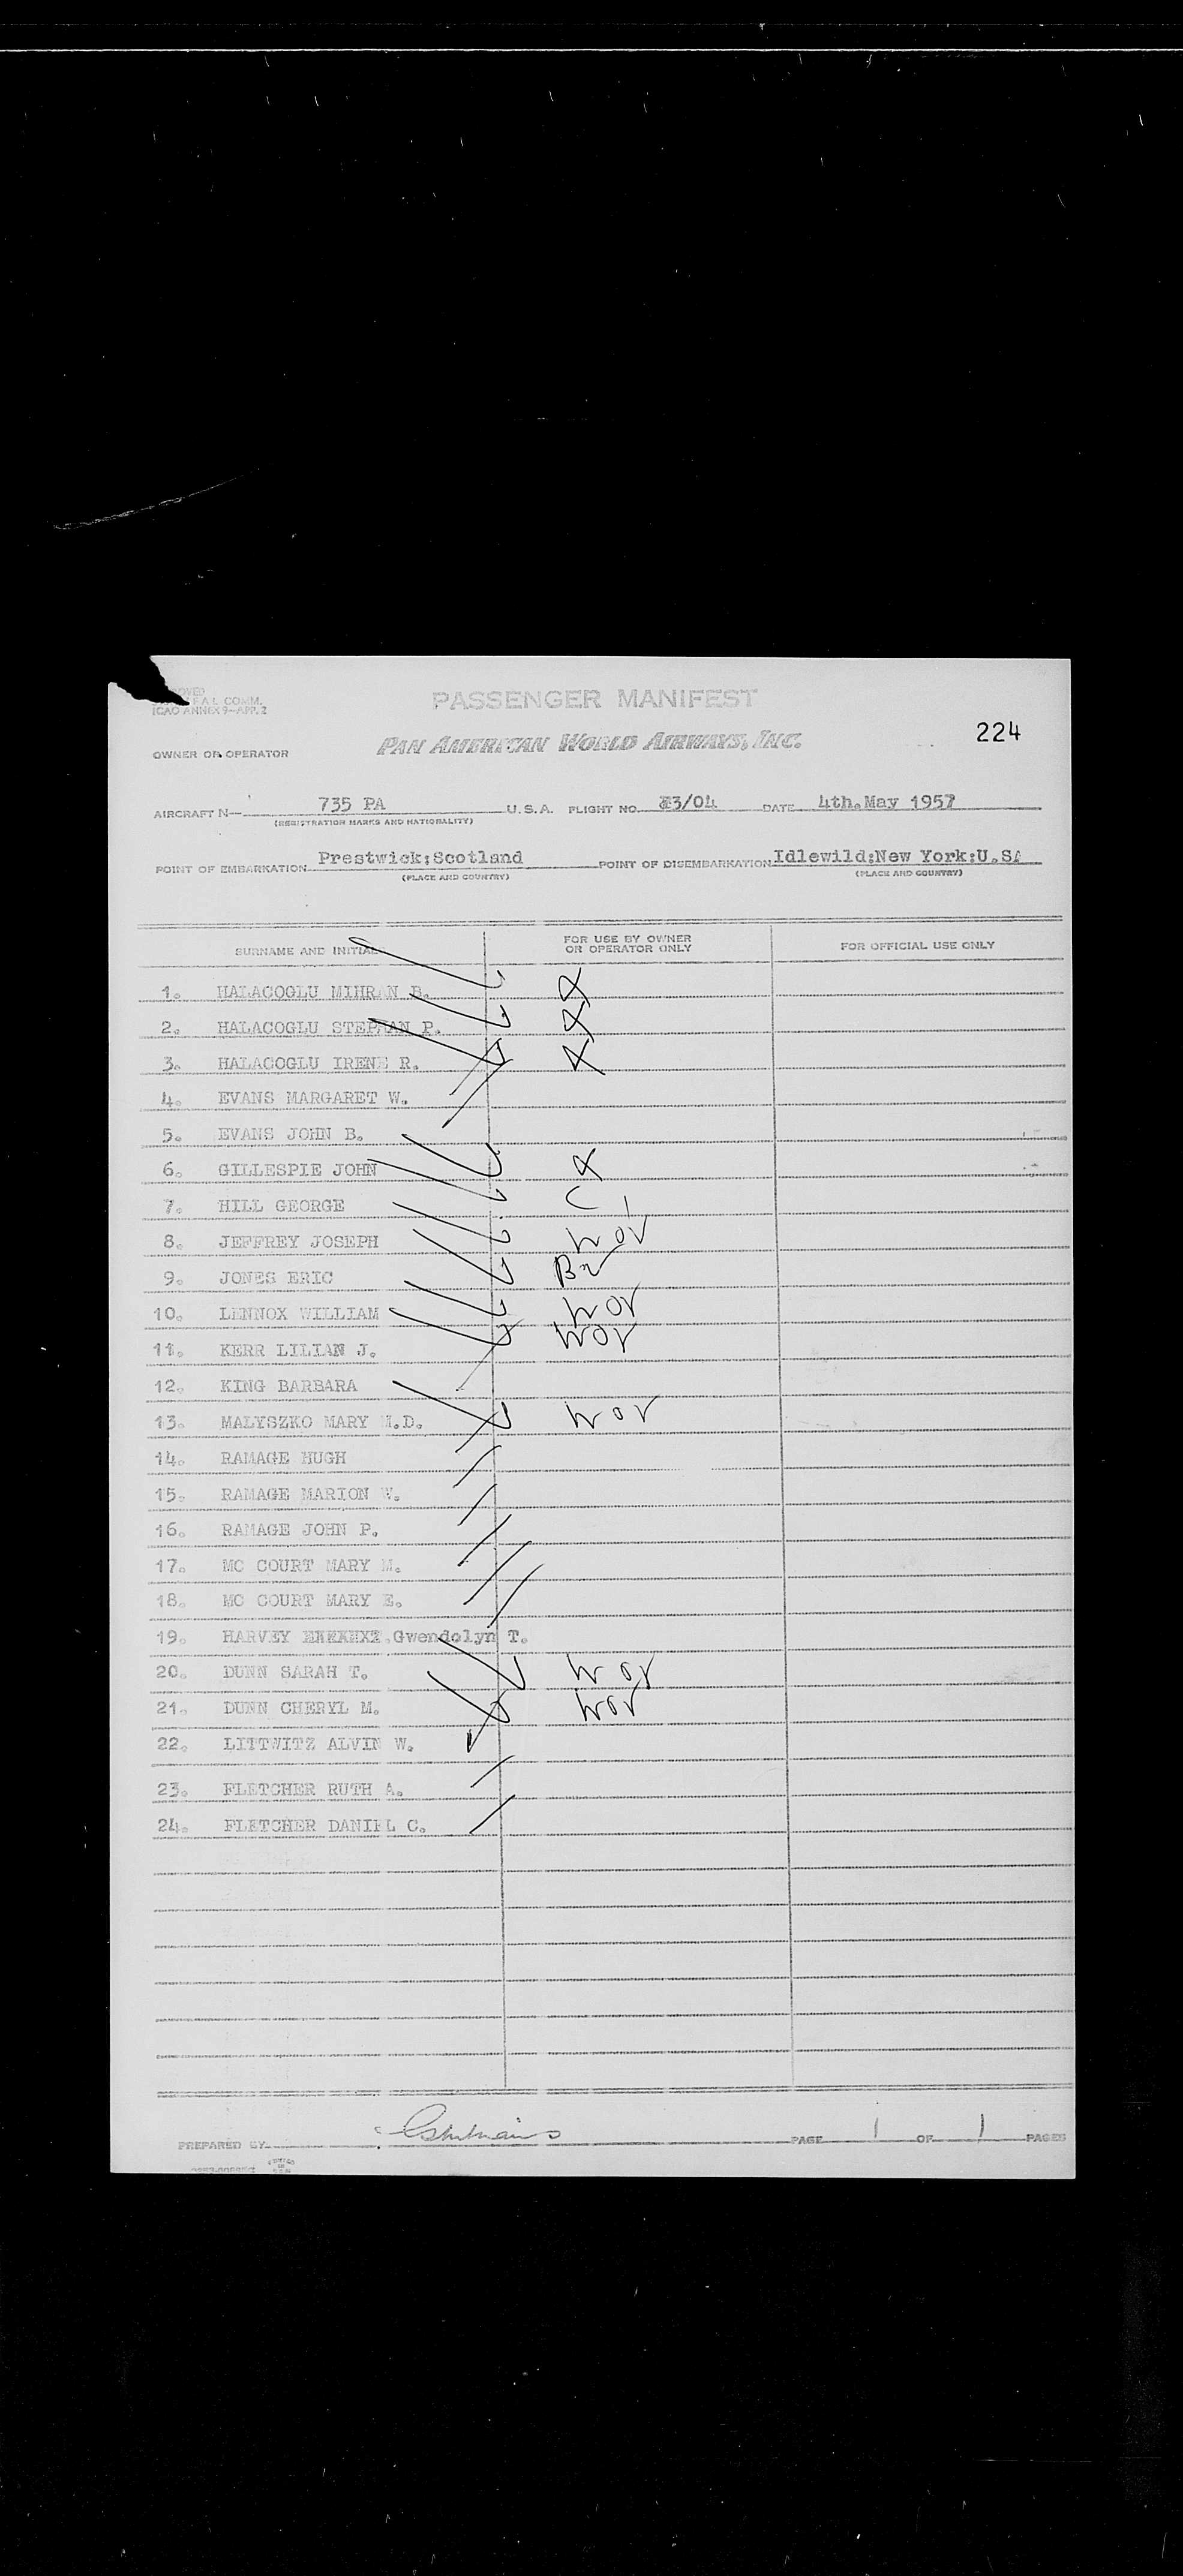 F A L COMM.
ICAO ANNEX 9—APP. 2
PASSENGER MANIFEST
OWNER OR OPERATOR
PAN AMERICAN WORLD AIRWAYS, INC.
224
AIRCRAFT N— 735 PA U.S.A. FLIGHT NO. 3/04 DATE 4th.May 1957
(REGISTRATION MARKS AND NATIONALITY)
POINT OF EMBARKATION Prestwick;Scotland POINT OF DISEMBARKATION Idlewild;New York:U.SA
(PLACE AND COUNTRY) (PLACE AND COUNTRY)
SURNAME AND INITIAL FOR USE BY OWNER OR OPERATOR ONLY FOR OFFICIAL USE ONLY
1. HALACOGLU MIHRAN B. X
2. HALACOGLU STEPHAN P. X
3. HALACOGLU IRENE R. X
4. EVANS MARGARET W.
5. EVANS JOHN B.
6. GILLESPIE JOHN X
7. HILL GEORGE C
8. JEFFREY JOSEPH
9. JONES ERIC
10. LENNOX WILLIAM
11. KERR LILIAN J.
12. KING BARBARA
13. MALYSZKO MARY M.D.
14. RAMAGE HUGH
15. RAMAGE MARION W.
16. RAMAGE JOHN P.
17. MC COURT MARY M.
18. MC COURT MARY E.
19. HARVEY Gwendolyn T.
20. DUNN SARAH T.
21. DUNN CHERYL M.
22. LITTWITZ ALVIN W.
23. FLETCHER RUTH A.
24. FLETCHER DANIEL C.
PREPARED BY PAGE 1 OF 1 PAGES